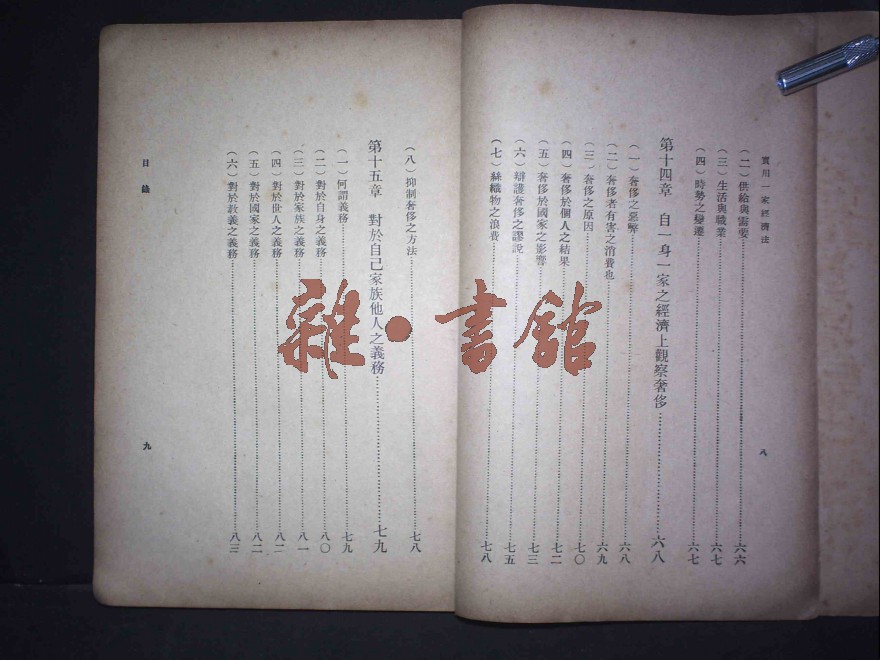 實用一家經濟法
八
(二)供給與需要……六六
(三)生活與職業……六七
(四)時勢之變遷……六七
第十四章　自一身一家之經濟上觀察奢侈……六八
(一)奢侈之惡弊……六八
(二)奢侈者有害之消費也……六九
(三)奢侈之原因……七〇
(四)奢侈於個人之結果……七二
(五)奢侈於國家之影響……七三
(六)辯護奢侈之謬說……七五
(七)絲織物之浪費……七八
(八)抑制奢侈之方法……七八
第十五章　對於自己家族他人之義務……七九
(一)何謂義務……七九
(二)對於自身之義務……八〇
(三)對於家族之義務……八一
(四)對於世人之義務……八二
(五)對於國家之義務……八二
(六)對於教義之義務……八三
目錄
九
雜·書館